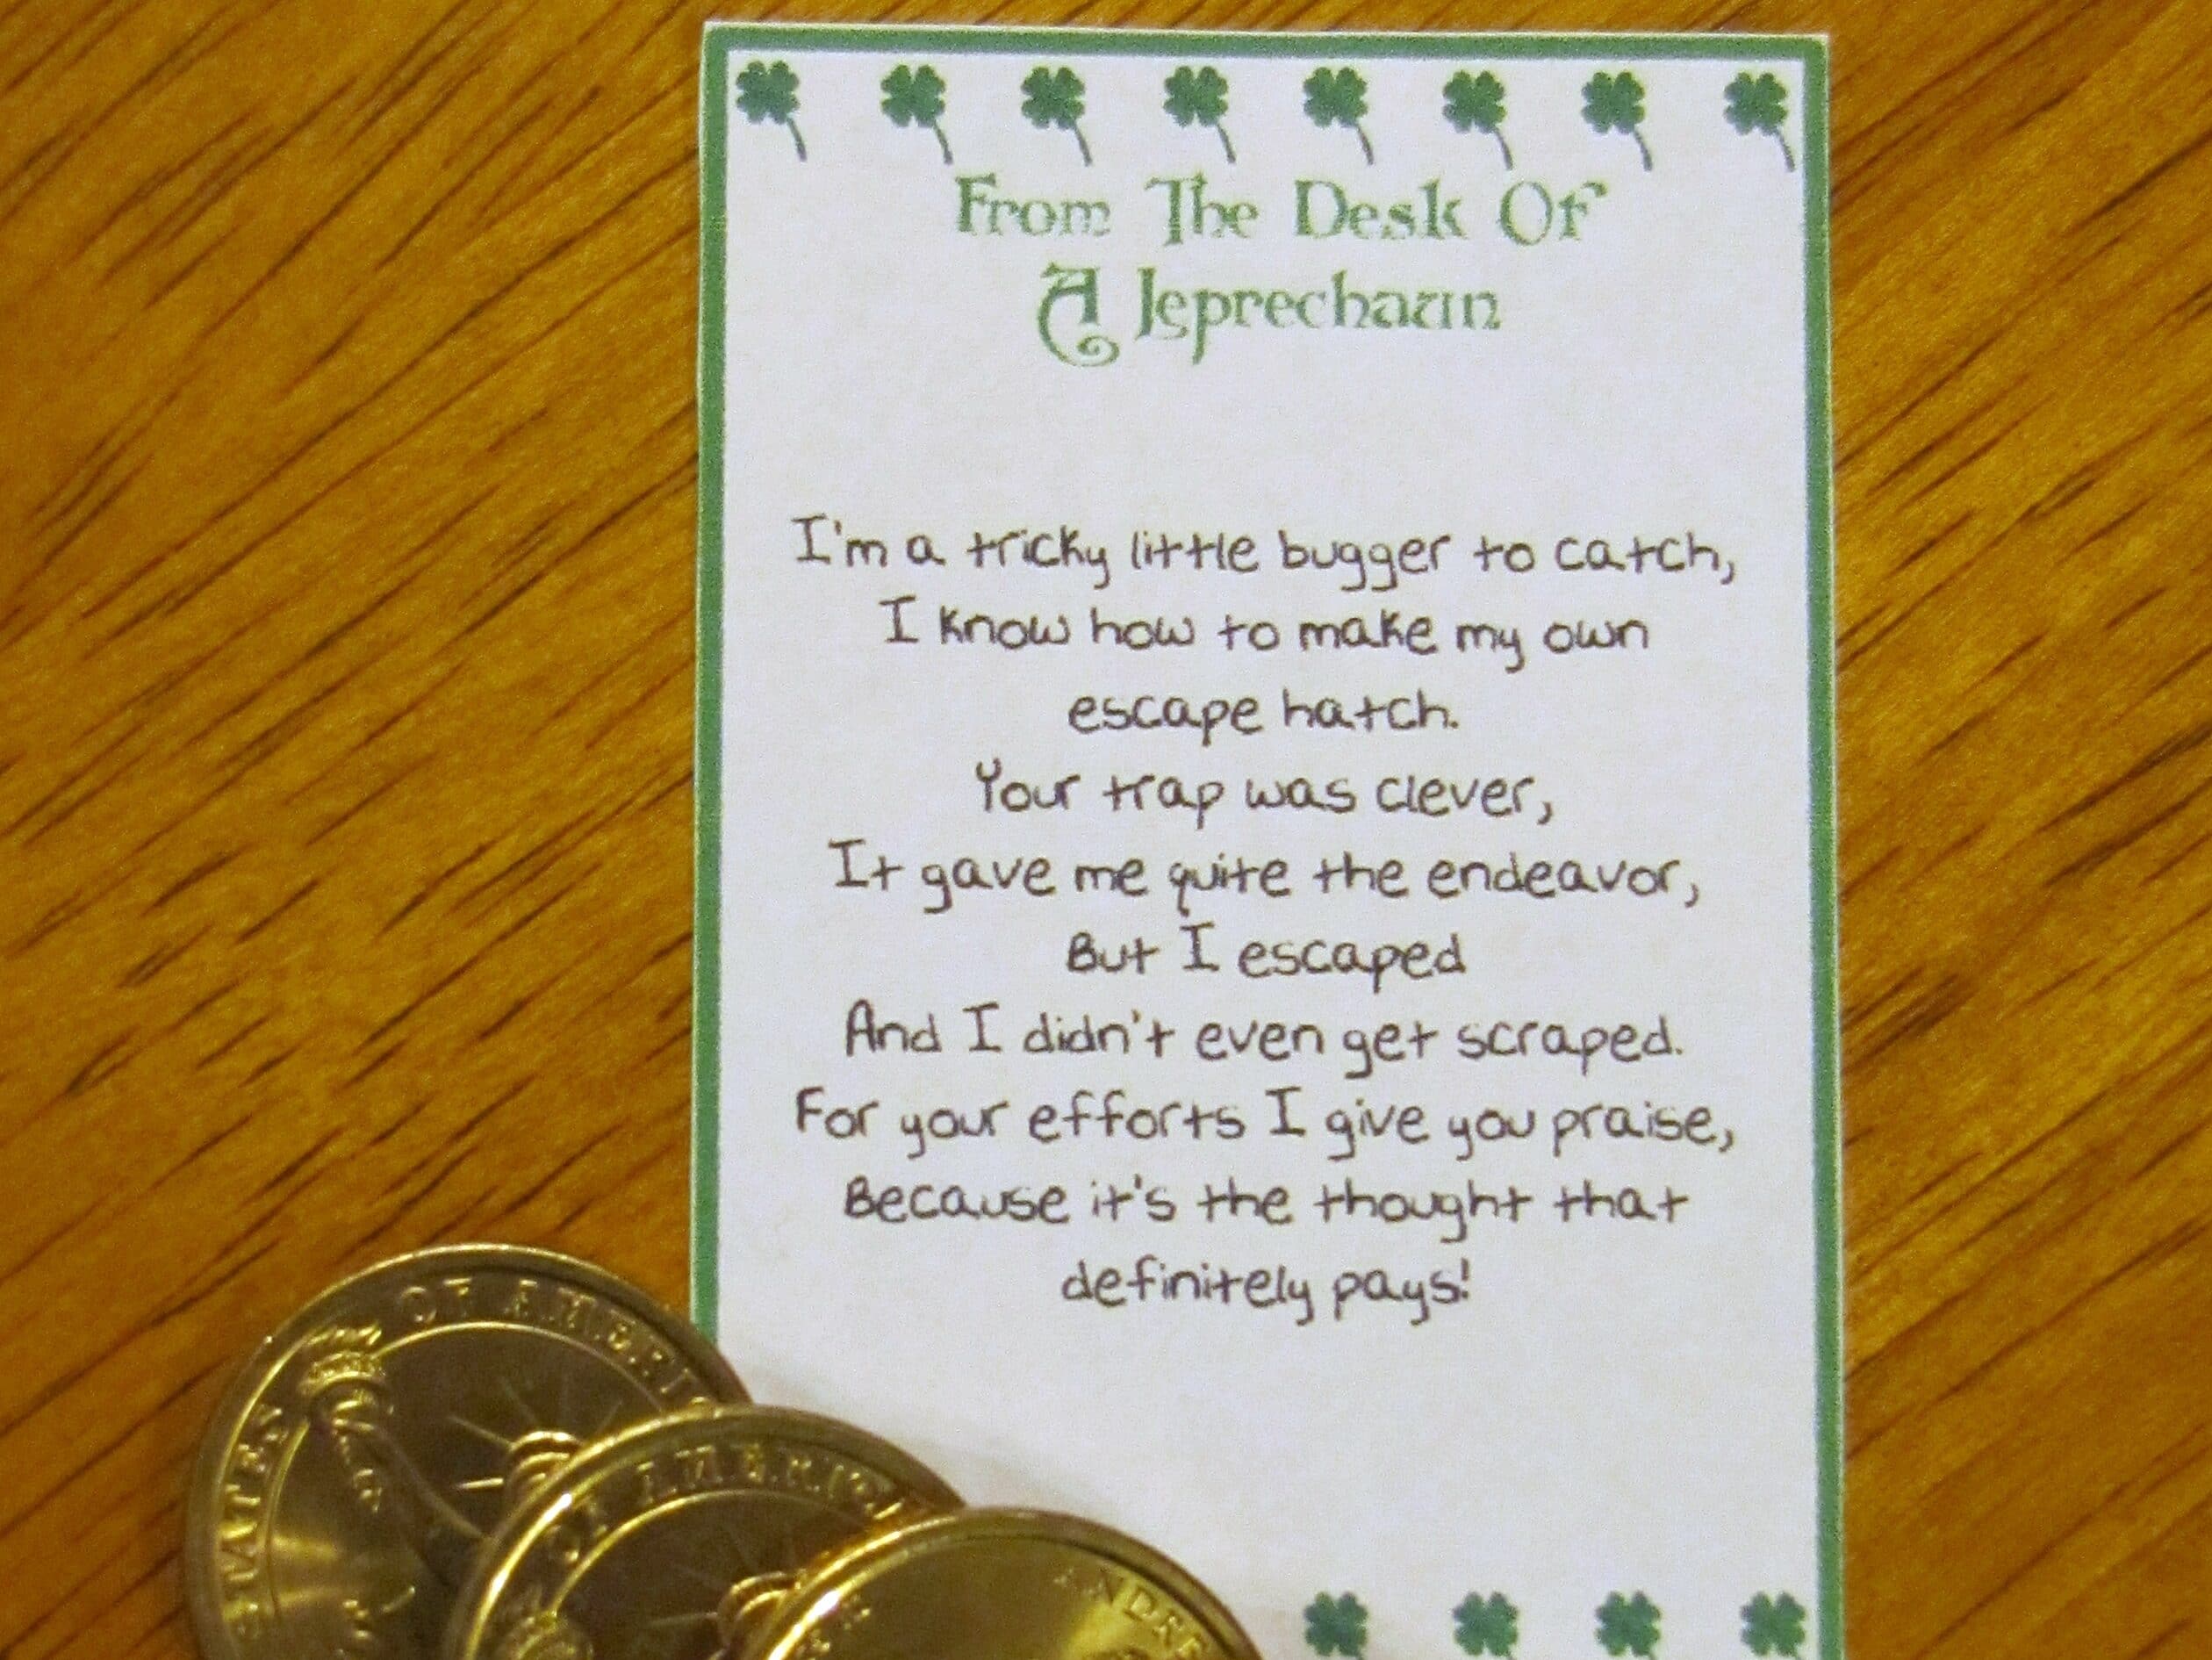 From The Desk Of
A Leprechaun
I'm a tricky little bugger to catch,
I know how to make my own
escape hatch.
Your trap was clever,
It gave me quite the endeavor,
But I escaped
And I didn't even get scraped.
For your efforts I give you praise,
Because it's the thought that
definitely pays!
STATES OF AMERIC
OF AMERIC
ANDRE